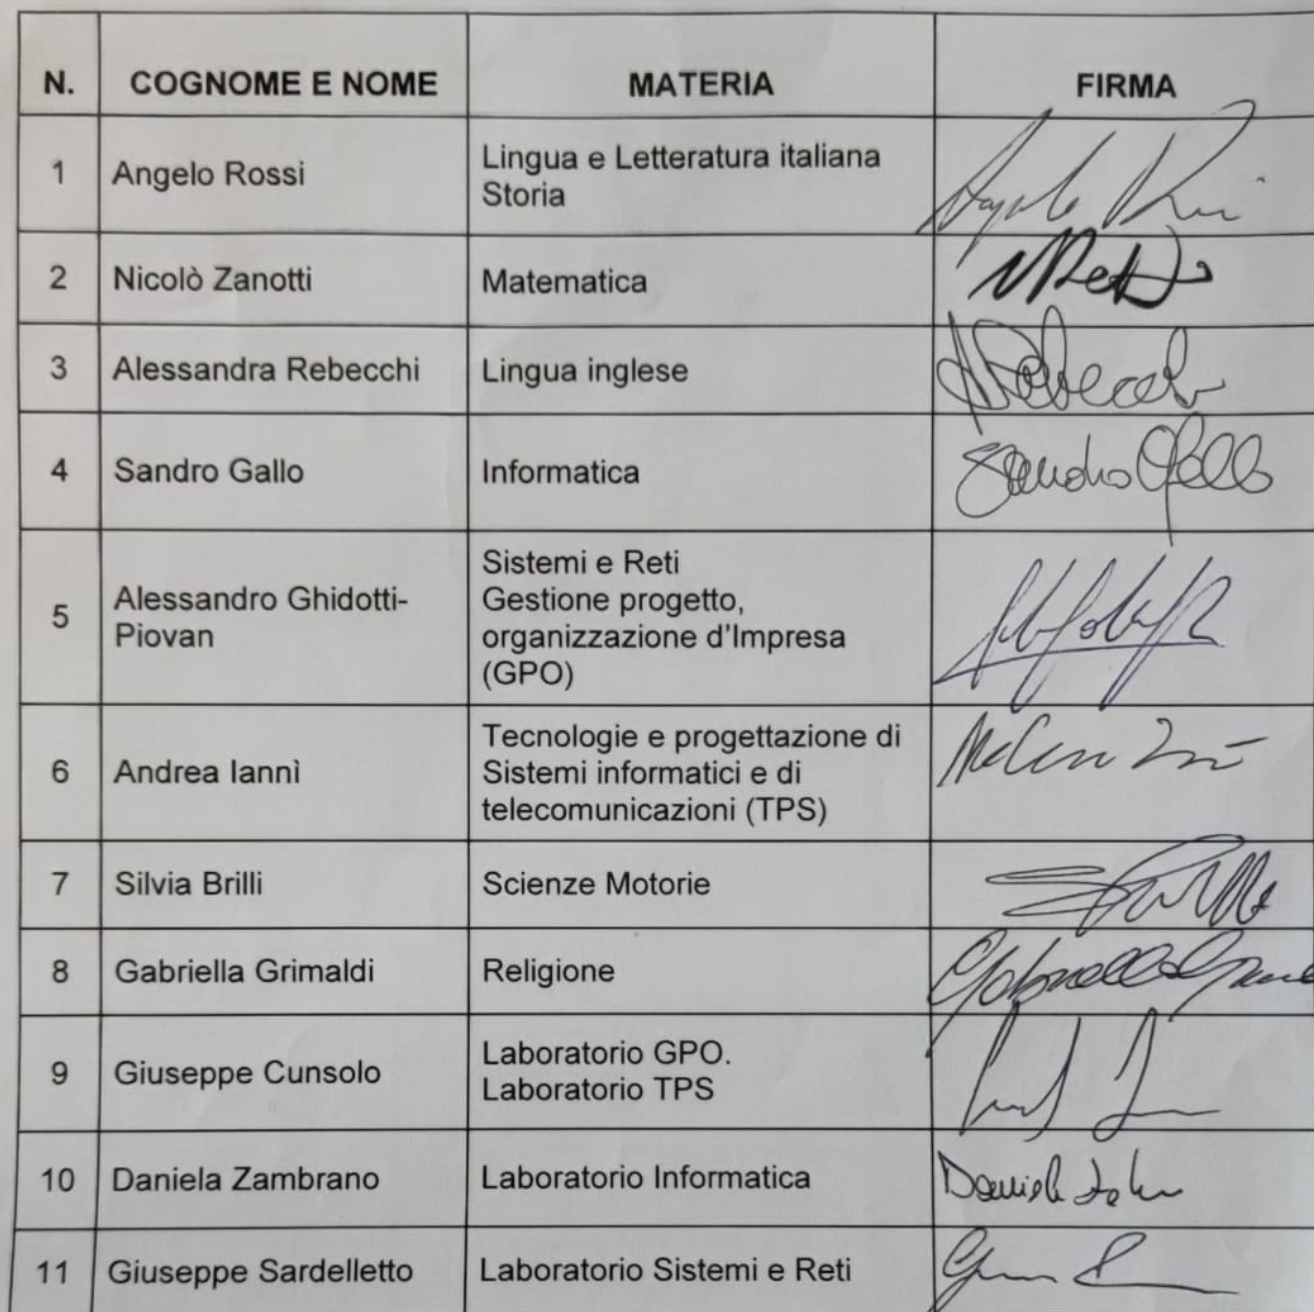 N. COGNOME E NOME MATERIA FIRMA
1 Angelo Rossi Lingua e Letteratura italiana
Storia
2 Nicolò Zanotti Matematica
3 Alessandra Rebecchi Lingua inglese
4 Sandro Gallo Informatica Sandro Gallo
5 Alessandro Ghidotti-
Piovan
Sistemi e Reti
Gestione progetto,
organizzazione d'Impresa
(GPO)
6 Andrea Iannì
Tecnologie e progettazione di
Sistemi informatici e di
telecomunicazioni (TPS)
7 Silvia Brilli Scienze Motorie
8 Gabriella Grimaldi Religione
9 Giuseppe Cunsolo Laboratorio GPO.
Laboratorio TPS
10 Daniela Zambrano Laboratorio Informatica
11 Giuseppe Sardelletto Laboratorio Sistemi e Reti